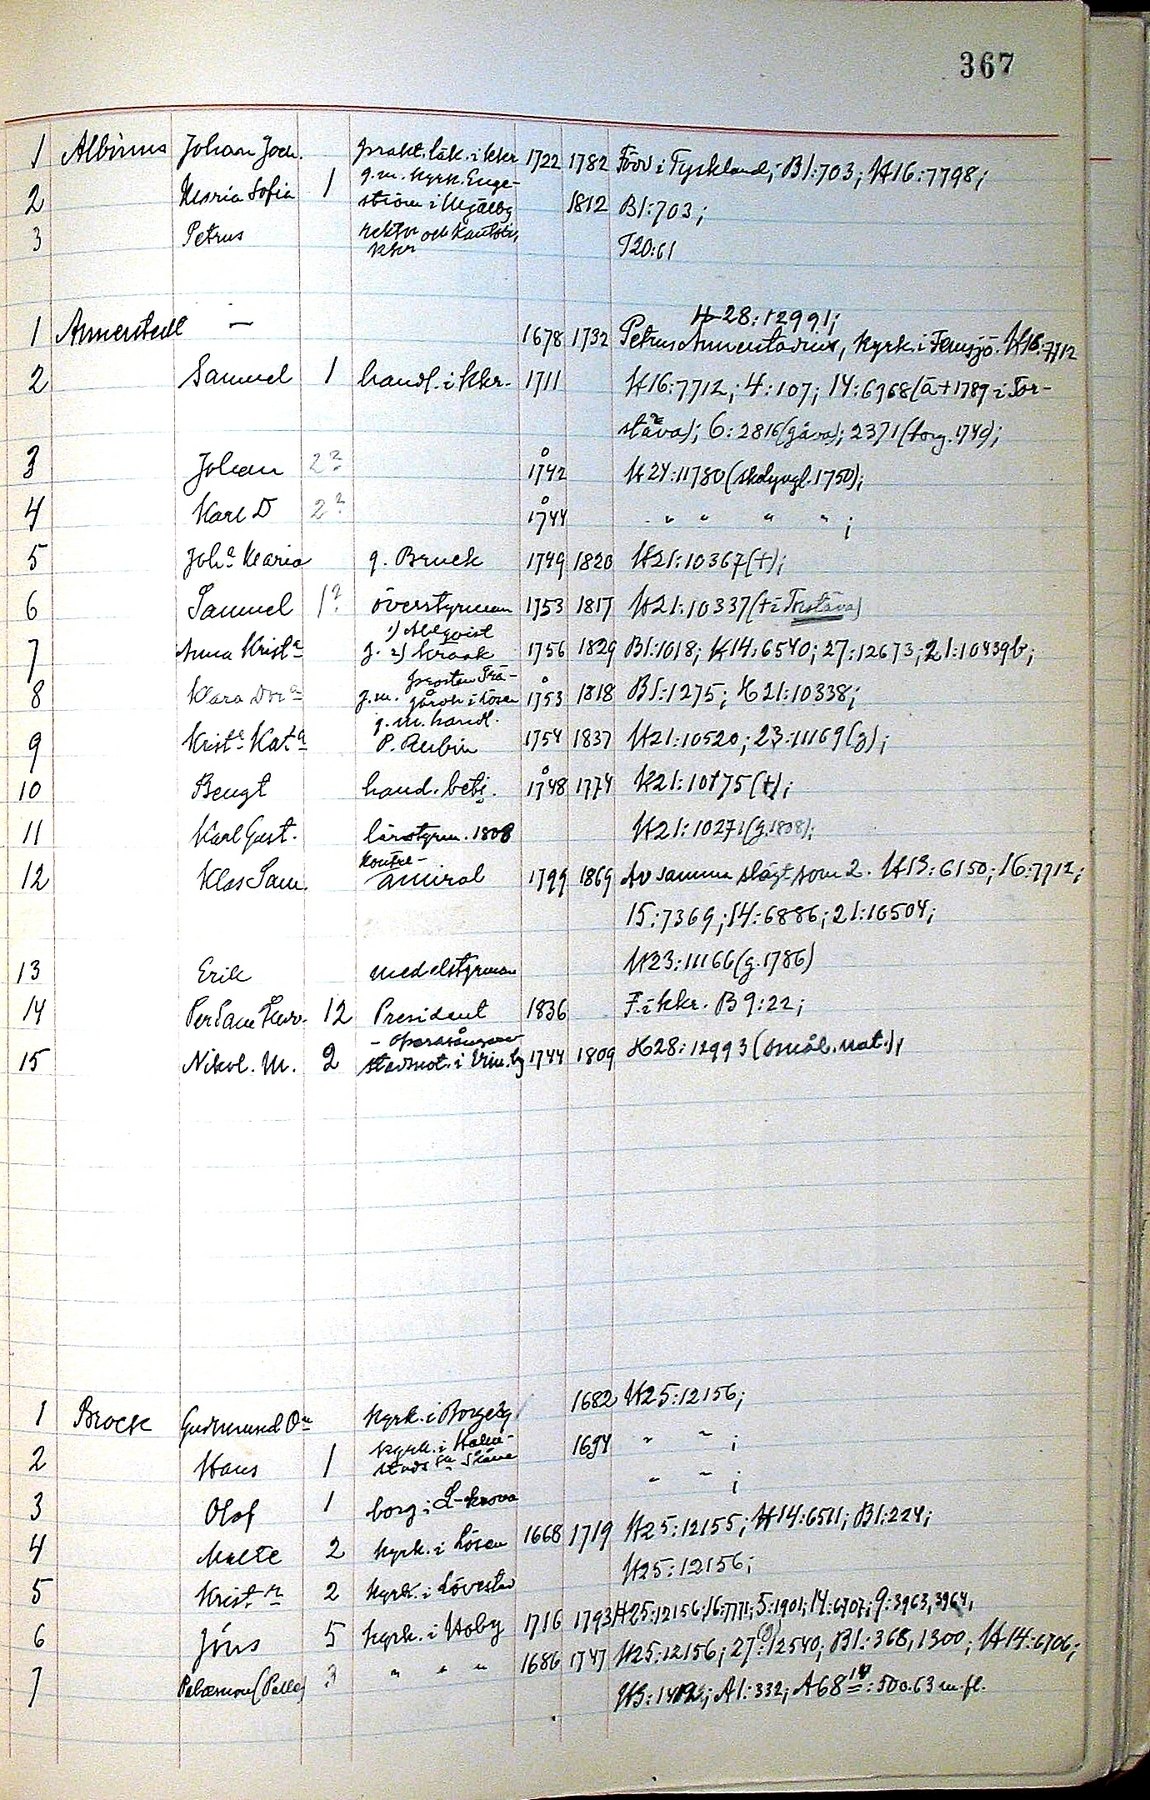 367
1 Albinus Johan Joch. prakt. läk. i kkr 1722 1782 Född i Tyskland; B1:703; K16:7798;
2 Maria Sofia 1 g.m. kyrk. Enge-
ström i Mjälby 1812 B1:703;
3 Petrus rektor och kantor i
kkr T20:61
H28:12991;
1 Annerstedt — 1678 1732 Petrus Annerstadius, kyrk. i Femsjö. K16:7712
2 Samuel 1 handl. i kkr. 1711 K16:7712; 4:107; 14:6768 (ä + 1789 i Tor-
stäva); 6:2816 (gåva); 2371 (borg. 1740);
3 Johan 2? 1742 K24:11780 (skolyngl. 1750);
4 Karl D 2? 1744 " " " " ;
5 Joh:a Maria g. Bruck 1749 1820 K21:10367 (+);
6 Samuel 1? överstyrman 1753 1817 K21:10337 (+ i Torstäva)
7 Anna Krist:a g. 1) Ahlqvist
2) Kraak 1756 1829 B1:1018; K14:6540; 27:12673; 21:10439b;
8 Klara Dor:a g.m. prosten Trä-
gårdh i Lösen 1753 1818 B1:1275; K21:10338;
9 Krist:a Kat:a g.m. handl.
P. Rubin 1754 1837 K21:10520; 23:11169 (g);
10 Bengt hand. betj. 1748 1774 K21:10175 (+);
11 Karl Gust. lärstyrm. 1808 K21:10271 (g. 1808);
12 Klas Sam. kontre-
amiral 1799 1869 Av samma slägt som 2. K13:6150; 16:7712;
15:7369; 14:6886; 21:10504;
13 Erik medelstyrman K23:11166 (g. 1786)
14 Per Sam 12 President 1836 F. i kkr. B9:22;
- operasångare
15 Nikol. M. 2 stadsnot. i Vim.by 1744 1809 K28:12993 (smål. nat.);
1 Brock Gudmund O:n kyrk. i Borgeby 1682 K25:12156;
2 Hans 1 kyrk. i Halm-
stads sn Skåne 1694 " " ;
3 Olof 1 borg. i L-krona " " ;
4 Malte 2 kyrk. i Lösen 1668 1719 K25:12155; K14:6511; B1:224;
5 Krist:n 2 kyrk. i Lövestad K25:12156;
6 Jöns 5 kyrk. i Hoby 1716 1793 K25:12156; 16:7771; 5:1901; 14:6707; 9:3963, 3964,
7 Palæmon (Palle) 3 " " " 1686 1747 K25:12156; 27(?):12540; B1:368, 1300; K14:6706;
A1:332; A68 m.fl.